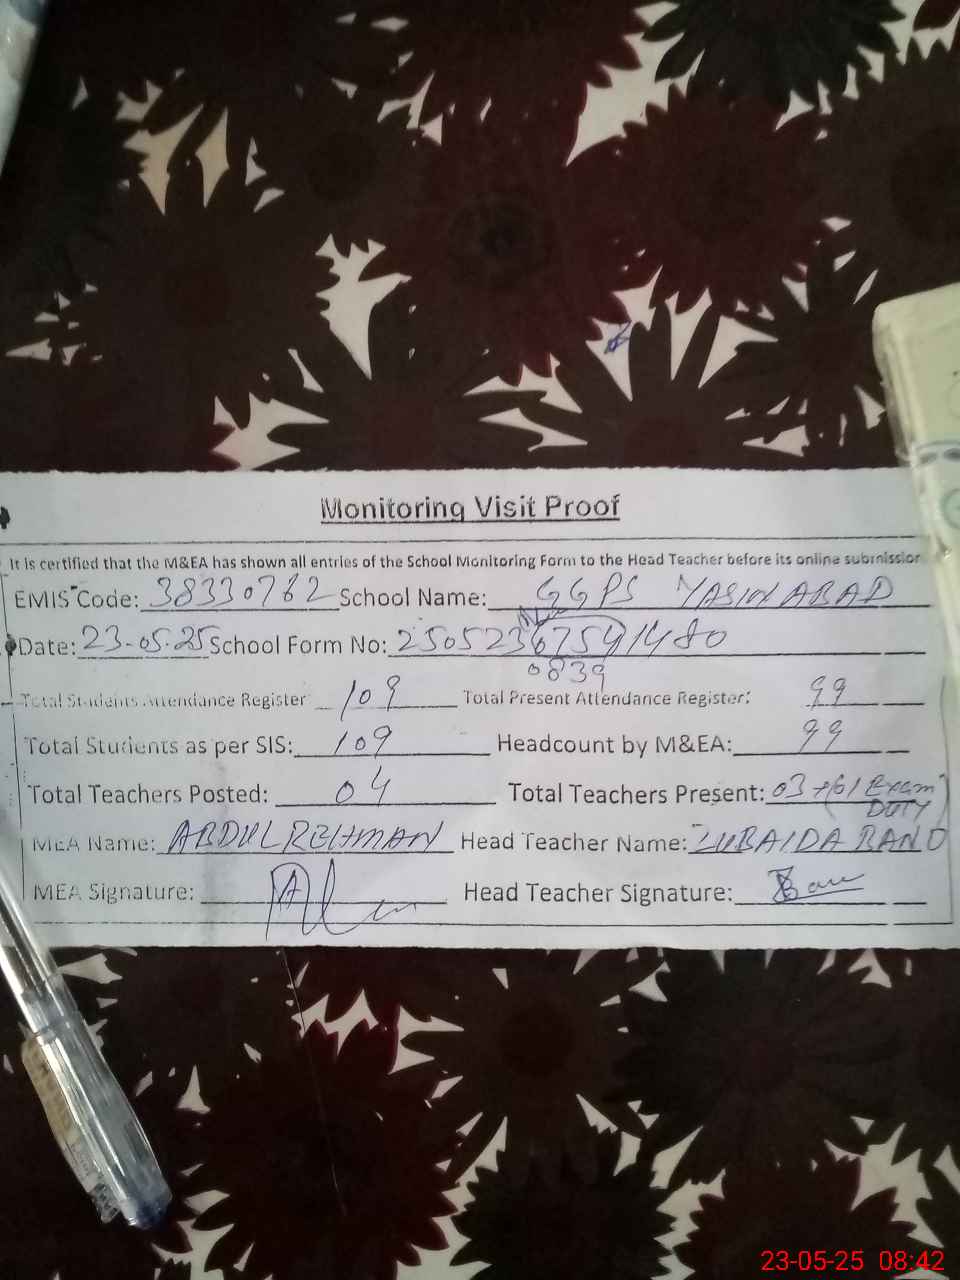 Monitoring Visit Proof
It is certified that the M&EA has shown all entries of the School Monitoring Form to the Head Teacher before its online submission
EMIS Code: 38330762 School Name: GGPS YASIN ABAD
Date: 23-05-25 School Form No: 25052367541480
0839
Total Students Attendance Register 109 Total Present Attendance Register: 99
Total Students as per SIS: 109 Headcount by M&EA: 99
Total Teachers Posted: 04 Total Teachers Present: 03+(01 Exam
DUTY)
MEA Name: ABDUL REHMAN Head Teacher Name: ZUBAIDA BANO
MEA Signature: Head Teacher Signature:
23-05-25 08:42